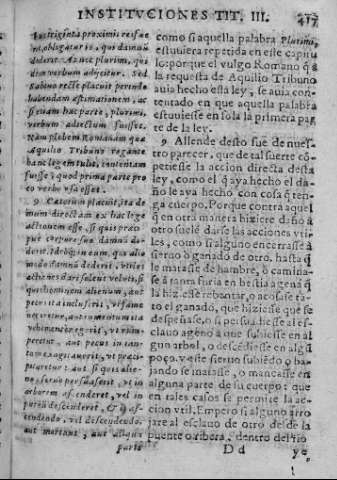 INSTITVCIONES TIT. III. 417
in triginta proximis res fue
rit, obligaretur is, qui damnũ
dederit. Ac nec plurimi, qui
dem verbum adjicitur. Sed
Sabino recte placuit perinde
habendam æstimationem, ac
si etiam hac parte, plurimi,
verbum adiectum fuisset.
Nam plebem Romanam quæ
Aquilio Tribuno rogante
hanc legem tulit, contentam
fuisse, quod prima parte pro
eo verbo vsa esset.
9 Cæterum placuit, ita de
mum directam ex hac lege
actionem esse, si quis præci
pue corpore suo damnũ de
derit. Ideoq́; in eum, qui alio
modo damnũ dederit, vtiles
actiones dari solent: veluti, si
quis hominem alienum, aut
pecus ita incluserit, vt fame
necaretur, aut iumentum ita
vehementer egerit, vt rum
peretur, aut pecus in tan
tum exagitauerit, vt præci
pitaretur: aut si quis alie
no seruo persuaserit, vt in
arborem ascenderet, vel in
puteũ descenderet, & is as
cendendo, vel descendendo,
aut mortuus, aut aliqua
parte
como si aquella palabra Plurimi,
estuuiera repetida en este capitu
lo: porque el vulgo Romano q̃ à
la requesta de Aquilio Tribuno
auia hecho esta ley, se auia con
tentado en que aquella palabra
estuuiesse en sola la primera par
te de la ley.
9 Allende desto fue de nues
tro parecer, que de tal suerte cõ
petiesse la accion directa desta
ley, como el q̃ aya hecho el da
ño le aya hecho con cosa q̃ ten
ga cuerpo. Porque contra aquel
q̃ en otra manera hiziere daño à
otro suelẽ darse las acciones vti
les, como si alguno encerrasse à
sieruo ò ganado de otro, hasta q̃
le matasse de hambre, ò caminas
se à tanta furia en bestia agena q̃
la hiziesse rebentar, o acosasse tã
to el ganado, que hiziesse que se
despeñasse, o si persuadiesse al es
clauo ageno à que subiesse en al
gun arbol, o descendiesse en algũ
poço, y este sieruo subiẽdo o ba
jando se matasse, o mancasse en
alguna parte de su cuerpo: que
en tales casos se permite la ac
cion vtil. Empero si alguno arro
jare al esclauo de otro desde la
puente o ribera, dentro del rio
D d ye